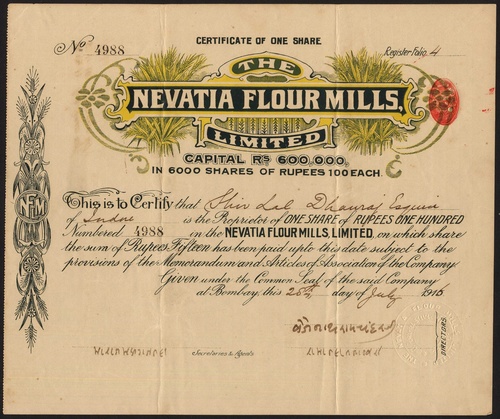 CERTIFICATE OF ONE SHARE
No 4988
Register Folio 4
THE
NEVATIA FLOUR MILLS,
LIMITED
CAPITAL RS 600,000,
IN 6000 SHARES OF RUPEES 100 EACH.
This is to Certify that Shiv Lal Dhanraj Esquire
of Indore is the Proprietor of ONE SHARE of RUPEES ONE HUNDRED
Numbered 4988 in the NEVATIA FLOUR MILLS, LIMITED, on which share
the sum of Rupees Fifteen has been paid up to this date subject to the
provisions of the Memorandum and Articles of Association of the Company
Given under the Common Seal of the said Company
at Bombay, this 25th day of July 191
NFM
Secretaries & Agents
DIRECTORS